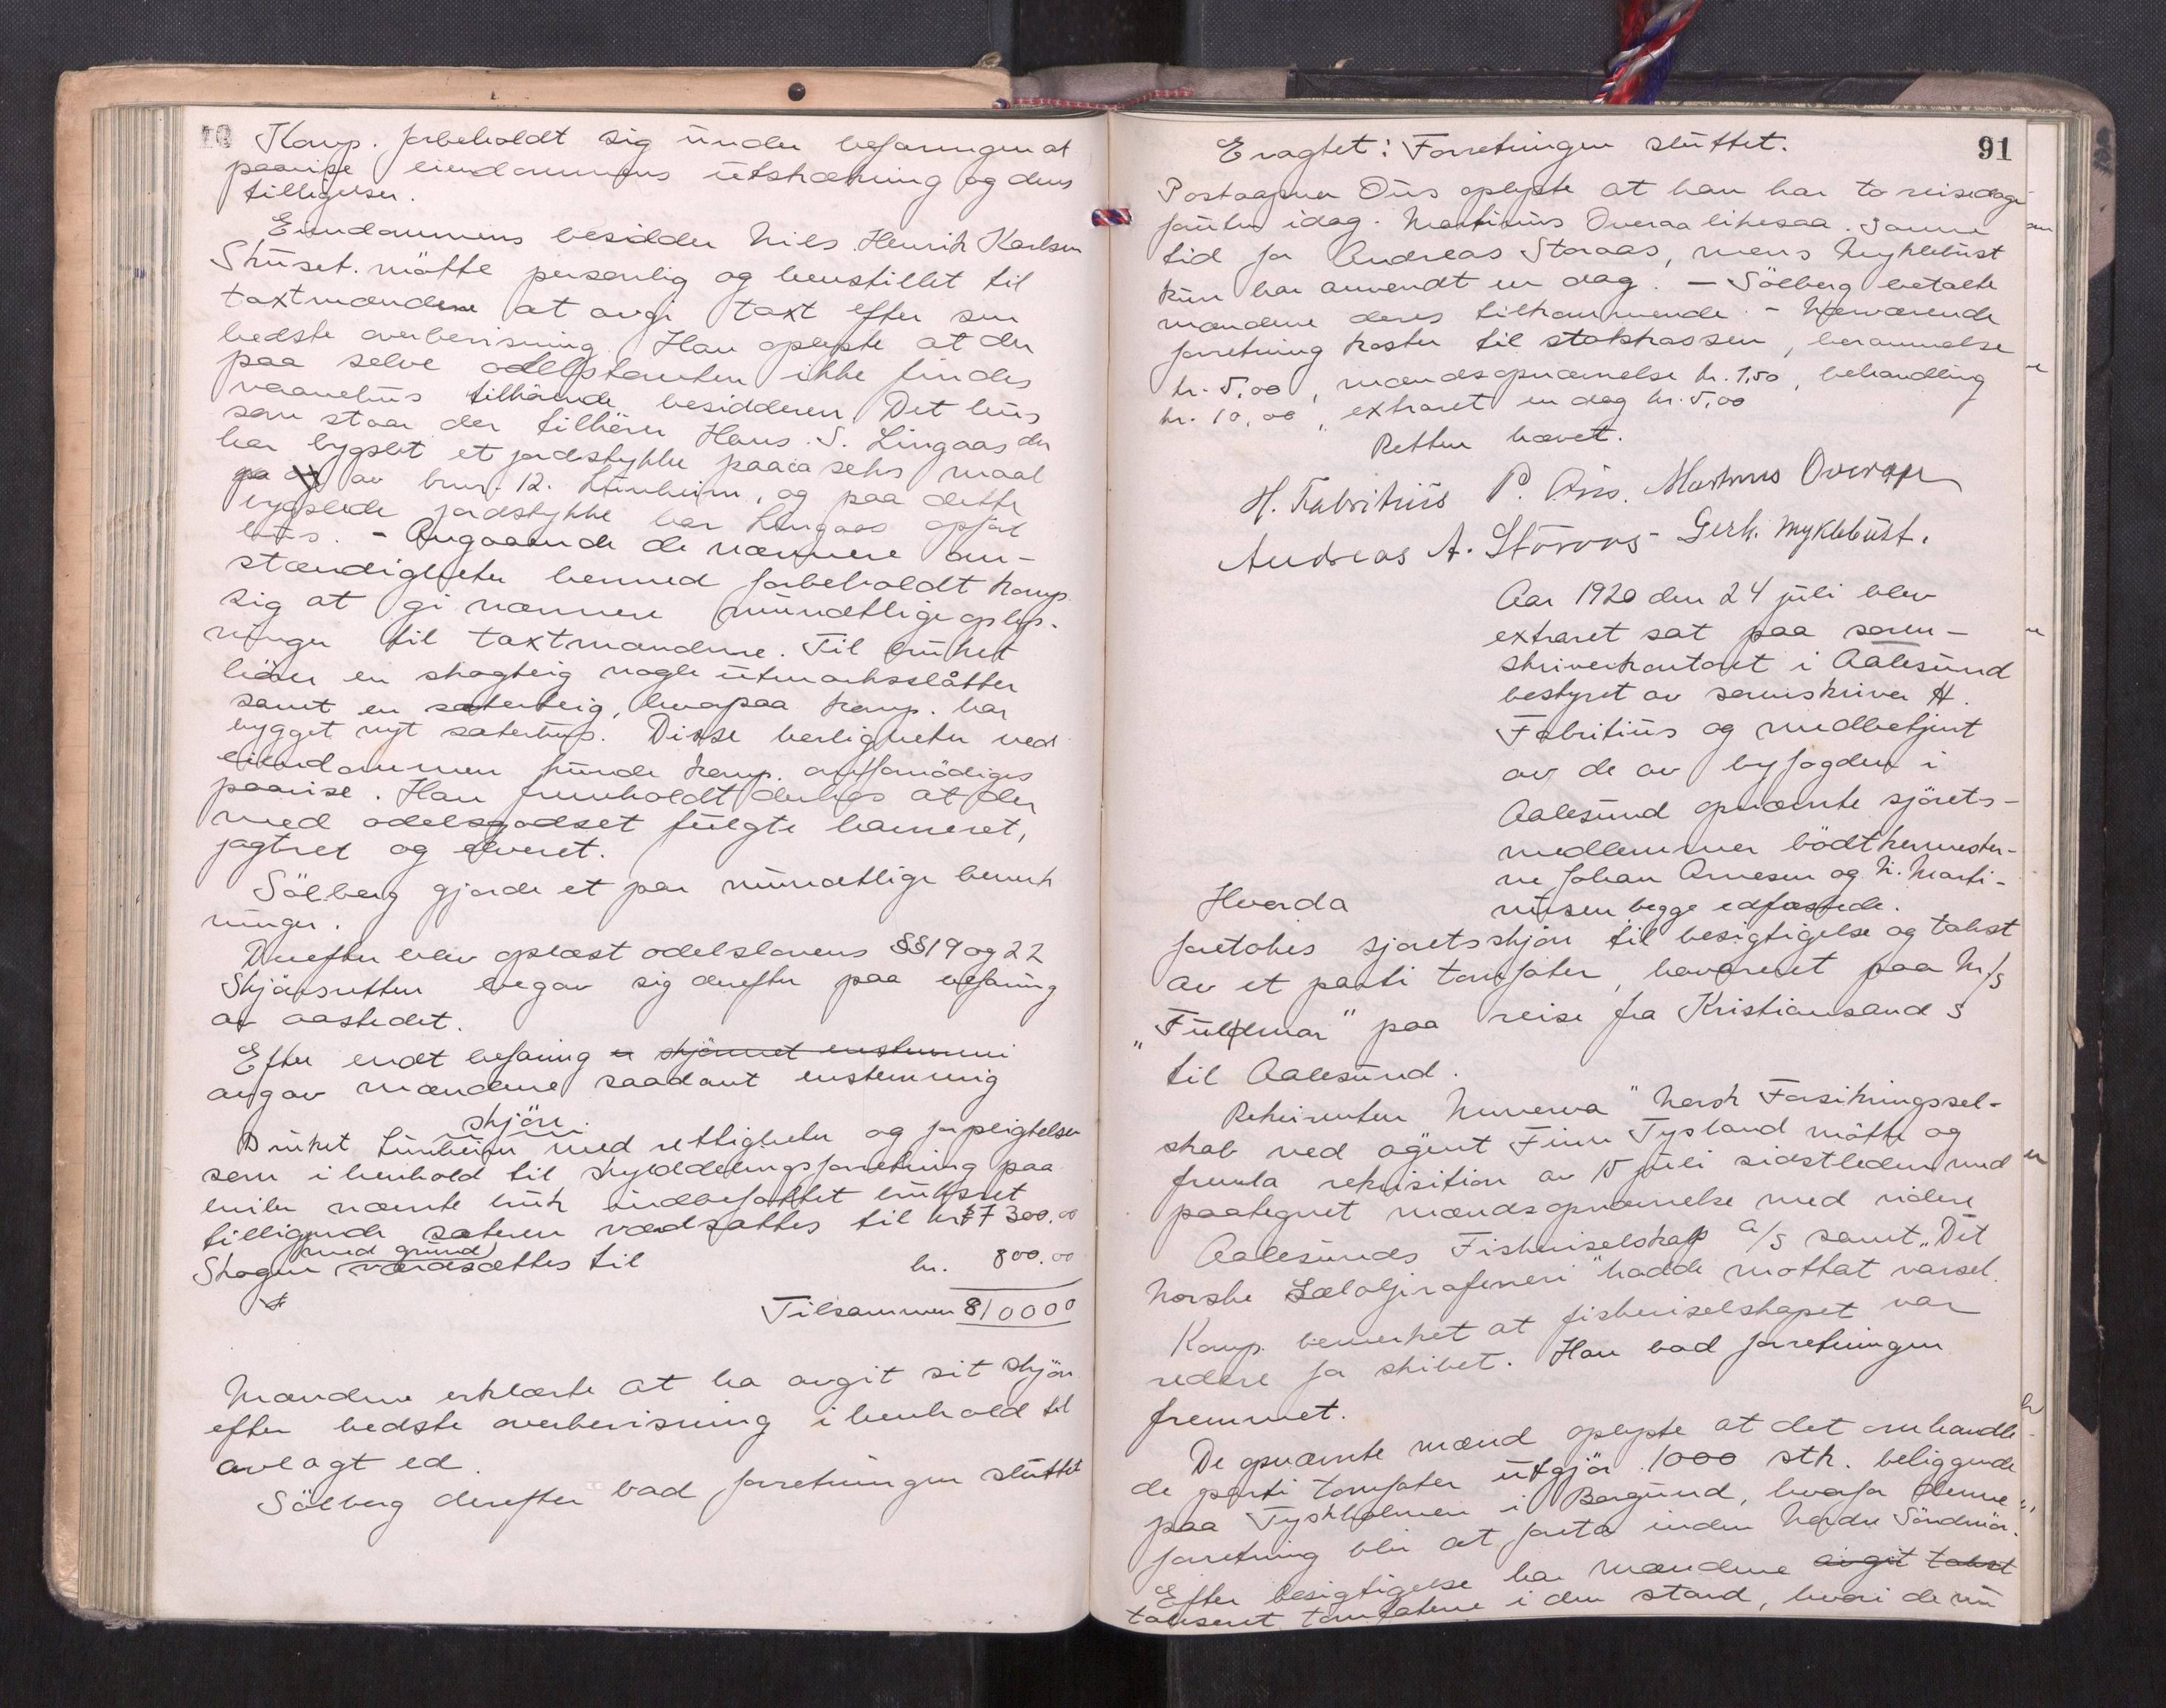 Komp. forbeholdt sig under befaringen at
paavise eiendommens utstrækning og dens
tilligelser.
Eiendommens besidder Nils Henrik Karlsen
Struset. mötte personlig og henstillet til
taxtmændene at avgi taxt efter sin
bedste overbevisning. Han oplyste at der
paa selve odelstomten ikke findes
vaanehus tilhörende besidderen. Det hus
som staar der tilhörer Hans S. Lingaas der
har bygslet et jordstykke paa ca seks maal
av brnr. 12. Lunheim, og paa dette
bygslede jordstykke har Lingaas opfört
hus. - Angaaende de nærmere om-
stændigheter herved forbeholdt komp.
sig at gi nærmere mundtlige oplys-
ninger til taxtmændene. Til bruket
hörer en skogteig nogle utmarksslåtter
samt en sæterteig, hvorpaa komp. har
bygget nyt sæterhus. Disse herligheter ved
eiendommen kunde komp. omformödiges
paavise. Han fremholdt derhos at der
med odelsgodset fulgte hameret,
jagtret og elveret.
Sölberg gjorde et par mundtlige bemerk
ninger.
Derefter blev oplæst odelslovens §§19 og 22
Skjönsretten begav sig derefter paa befaring
av aastedet.
Efter endt befaring er skjönnet enstemmi
avgav mændene saadant enstemmig
skjön.
Bruket Lunheim med rettigheter og forpligtelser
som i henhold til skylddelingsforretning paa
hviler nævnte bruk indbefattet bruksret
tilligende sæteren værdsættes til kr 7 300.00
med grund
Skogen værdsættes til kr. 800.00
Tilsammen 810000
Mændene erklærte at ha avgit sit skjön
efter bedste overbevisning i henhold til
avlagt ed.
Sölberg derefter bad forretningen sluttet
91
Eragtet: Forretningen sluttet.
Postaapner Öius oplyste at han har to reisedage
foruten idag. Martinus Overaa likesaa. Samme
tid for Andreas Staraas, mens Myklebust
kun har anvendt en dag. - Sölberg betalte
mændene deres tilkommende. - Nærværende
forretning koster til statskassen, berammelse
kr. 5,00, mændsopnævnelse kr. 1,50, behandling
kr. 10,00, extraret en dag kr. 5,00
Retten hævet.
H. Fabritius P. Öius. Martinus Overaa
Andreas A. Störaas - Gerh. Myklebust.
Aar 1920 den 24 juli blev
extraret sat paa soren-
skriverkontoret i Aalesund
bestyret av sorenskriver H.
Fabritius og medbetjent
av de av byfogden i
Aalesund opnævnte sjörets-
medlemmer bödtkermester-
ne Johan Arnesen og N. Marti-
nusen begge edfæstede.
Hvorda
foretokes sjöretsskjön til besigtigelse og takst
av et parti tomfater, havareret paa M/s
"Fuldmar" paa reise fra Kristiansand S
til Aalesund.
Rekvirenten Minerva "Norsk Forsikringssel-
skab ved agent Finn Tysland mötte og
fremla rekvisition av 15 juli sidstleden med
paategnet mændsopnævnelse med videre
Aalesunds Fiskeriselskap a/s samt "Det
Norske Sæloljerafineri" hadde mottat varsel.
Komp. bemerket at fiskeriselskapet var
redere for skibet. Han bad forretningen
fremmet.
De opnævnte mænd oplyste at det omhandle-
de parti tomfater utgjör 1000 stk. beliggende
paa Tyskholmen i Borgund, hvorfor denne
forretning blir at foreta inden Nordre Söndmör.
Efter besigtigelse har mændene avgit takst
takseret tomfatene i den stand, hvori de nu